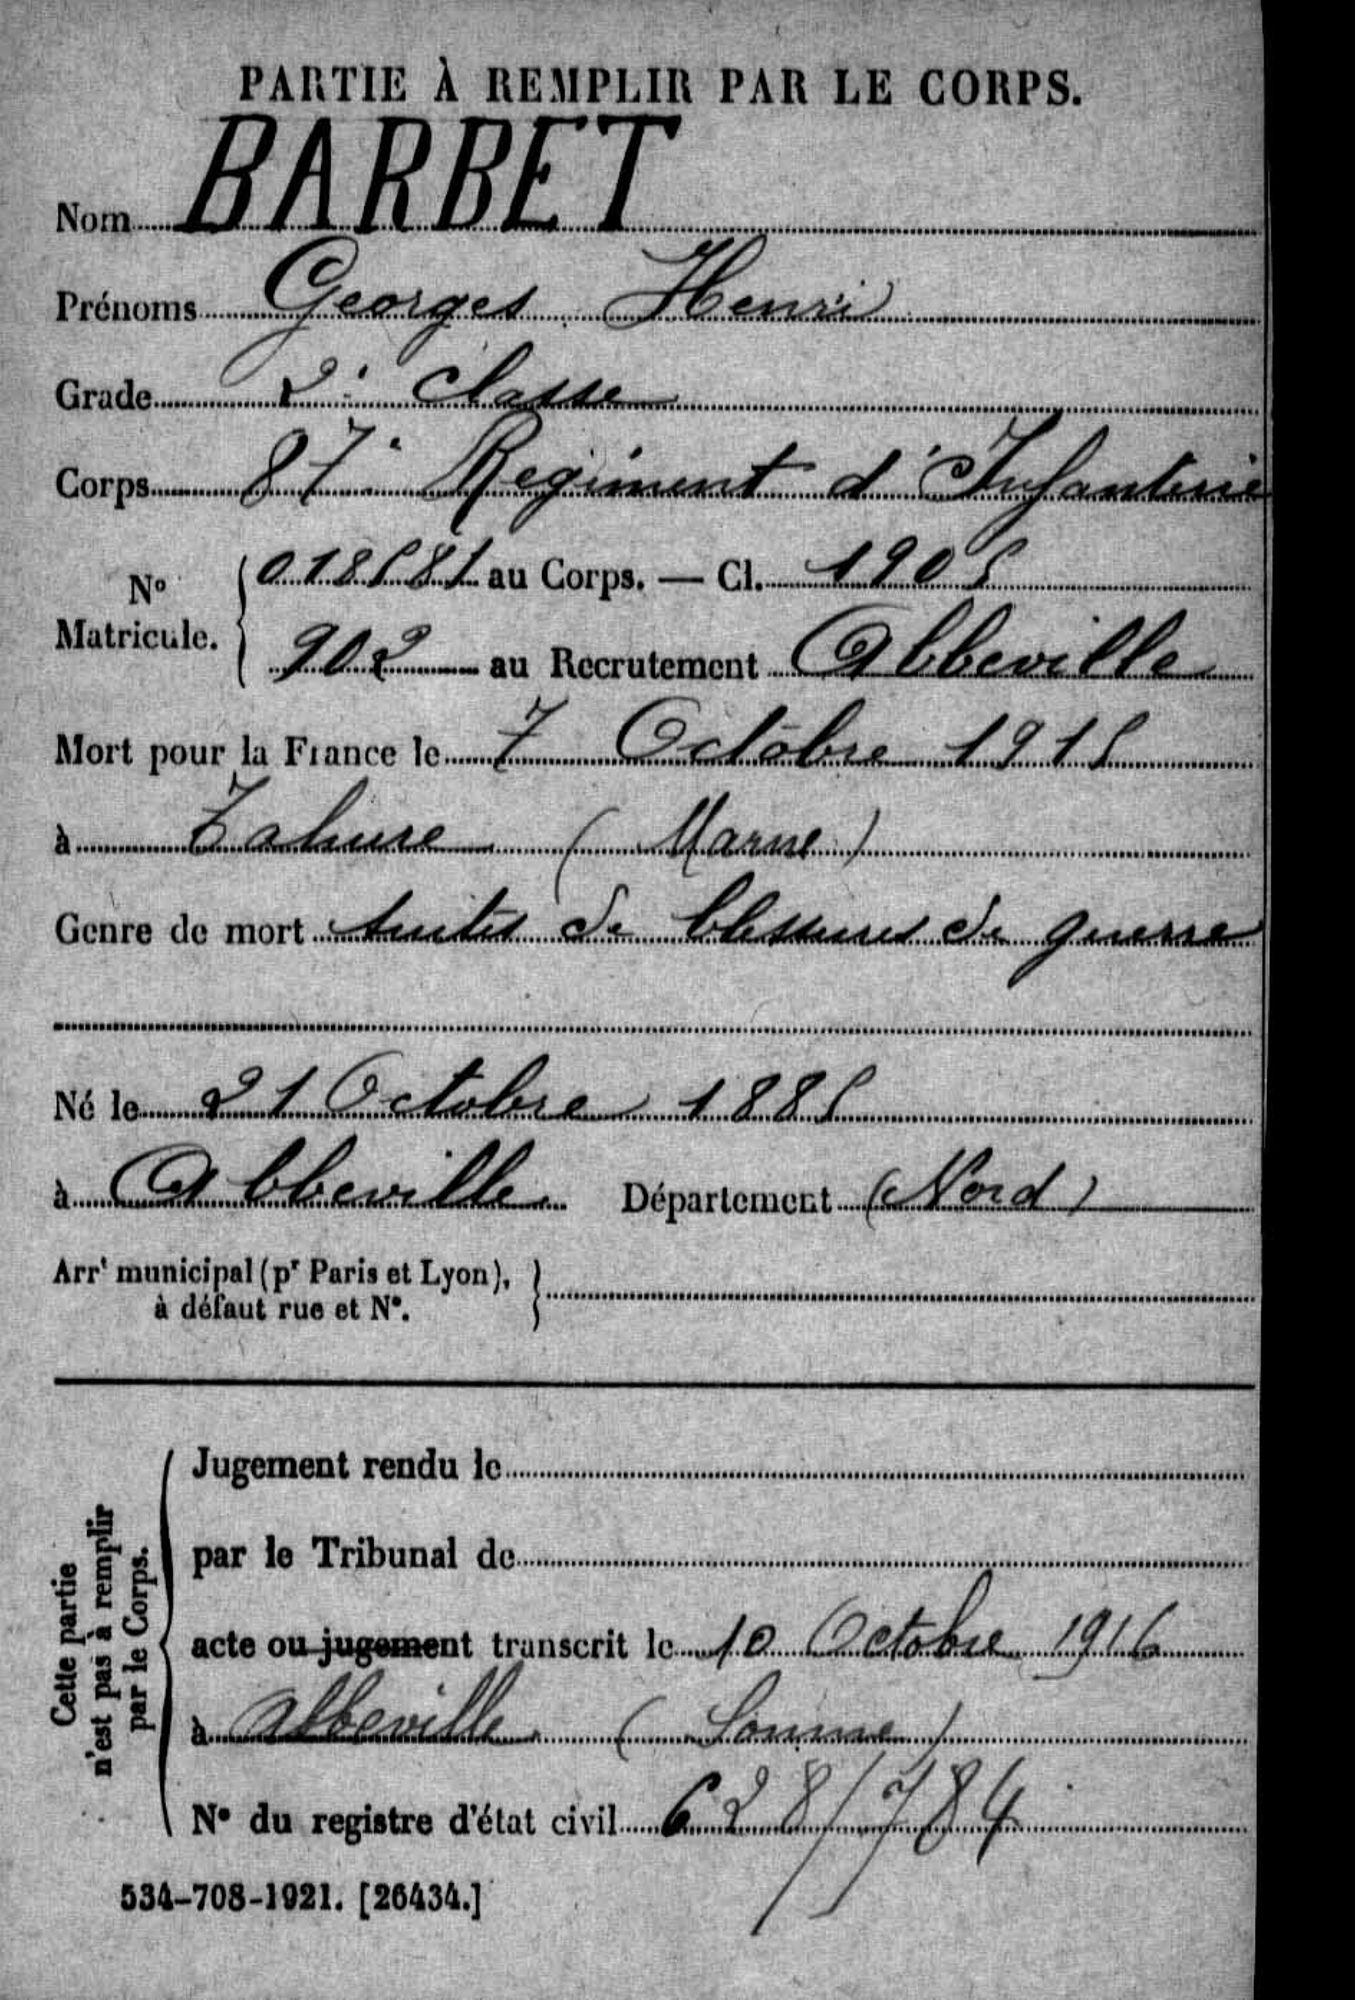 PARTIE À REMPLIR PAR LE CORPS.
Nom BARBET
Prénoms Georges Henri
Grade 2e classe
Corps 87e Regiment d'Infanterie
No Matricule. 018581 au Corps. — Cl. 1905
902 au Recrutement Abbeville
Mort pour la France le 7 Octobre 1915
à Tahure (Marne)
Genre de mort suites de blessures de guerre
Né le 21 Octobre 1885
à Abbeville Département (Nord)
Arrt municipal (pr Paris et Lyon),
à défaut rue et N°.
Cette partie
n'est pas à remplir
par le Corps.
Jugement rendu le
par le Tribunal de
acte ou jugement transcrit le 10 Octobre 1916
à Abbeville (Somme)
N° du registre d'état civil 628/784
534-708-1921. [26434.]